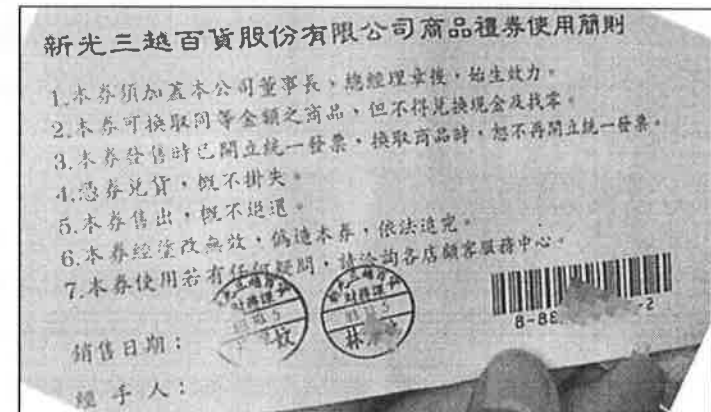 新光三越百貨股份有限公司商品禮券使用簡則
1.本券須加蓋本公司董事長、總經理章後,始生效力。
2.本券可換取同等金額之商品,但不得兌換現金及找零。
3.本券發售時已開立統一發票,換取商品時,恕不再開立統一發票。
4.憑券兌貨,概不掛失。
5.本券售出,概不退還。
6.本券經塗改無效,偽造本券,依法追究。
7.本券使用若有任何疑問,請洽詢各店顧客服務中心。
銷售日期:
經手人:
8-88
-2